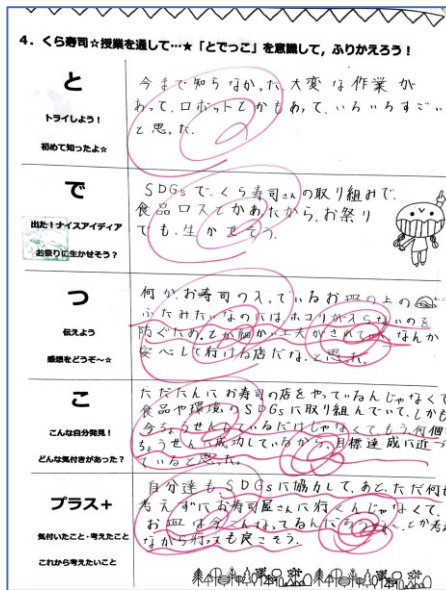 4．くら寿司☆授業を通して…★「とでっこ」を意識して，ふりかえろう！
と
トライしよう！
初めて知ったよ☆
今まで知らなかった大変な作業が
あって、ロボットとかもあって、いろいろすごい
と思った。
で
出た！ナイスアイディア
お祭りに生かせそう？
SDGsで、くら寿司さんの取り組みで、
食品ロスとかあたから、お祭り
でも、生かせそう。
つ
伝えよう
感想をどうぞ～☆
何か、お寿司の入っているお皿の上の
ふたみたいなのには、ホコリが入らないのを
防ぐため、とか細かい工夫がされていて、なんか
安心して行ける店だな、と思った。
こ
こんな自分発見！
どんな気付きがあった？
ただたんにお寿司の店をやっているんじゃなくて
食品や環境のSDGsに取り組んでいて、しかも
今ちょうせんしているだけじゃなくてもう何個
ちょうせんに成功しているから、目標達成に近づ
ていると思った。
プラス+
気付いたこと・考えたこと
これから考えたいこと
自分達も、SDGsに協力して、あと、ただ何も
考えずにお寿司屋さんに行くんじゃなくて、
お皿は今こんなってるんだ
、とか考え
ながら行っても良さそう。